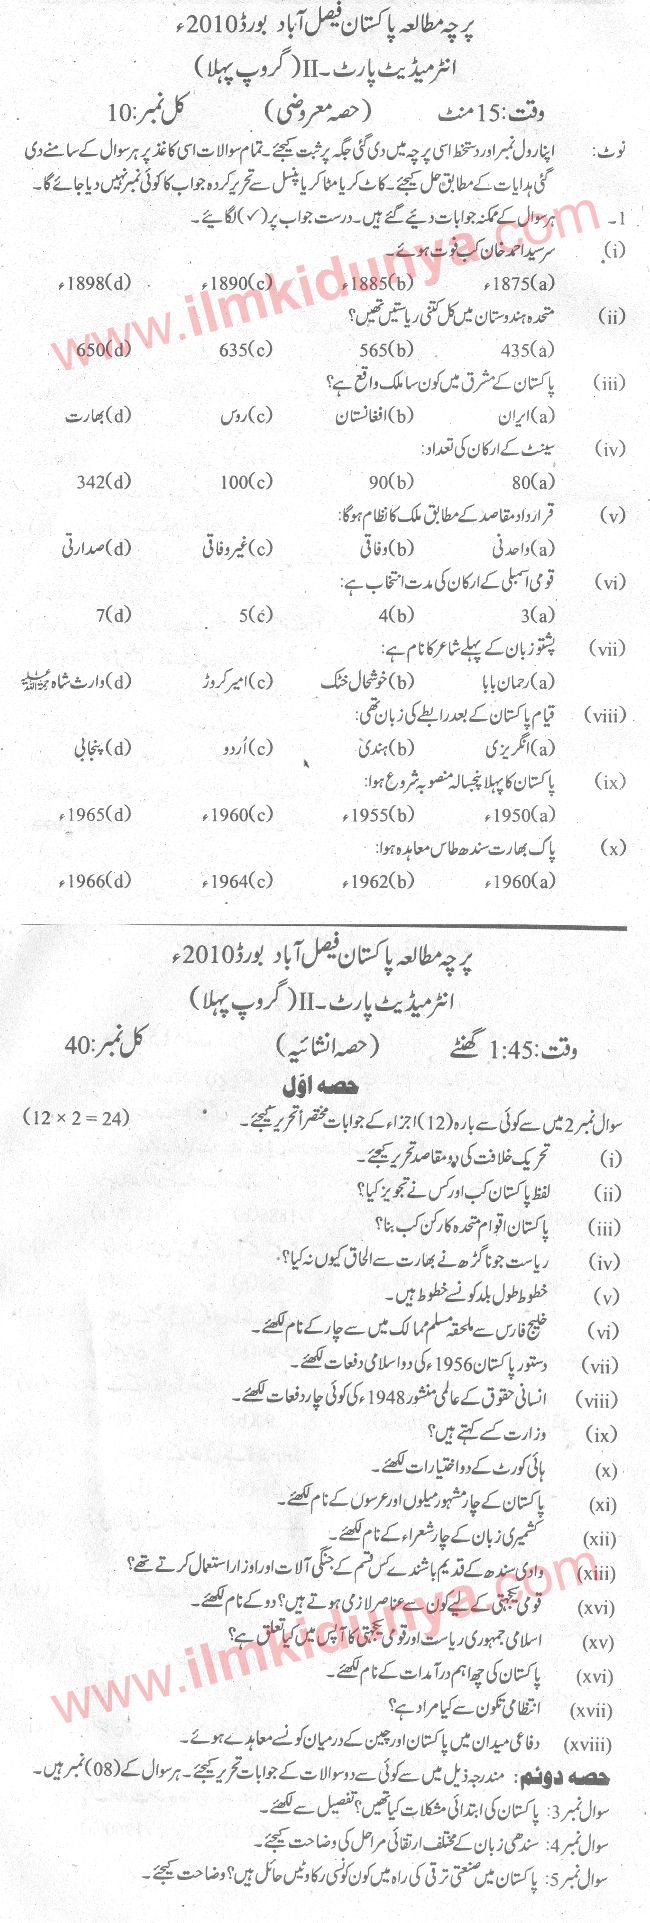 پرچہ مطالعہ پاکستان فیصل آباد بورڈ 2010ء
انٹرمیڈیٹ پارٹ۔II (گروپ پہلا)
وقت: 15 منٹ (حصہ معروضی) کل نمبر: 10
نوٹ: اپنا رول نمبر اور دستخط اسی پرچہ میں دی گئی جگہ پر ثبت کیجئے۔ تمام سوالات اسی کاغذ پر ہر سوال کے سامنے دی
گئی ہدایات کے مطابق حل کیجئے۔ کاٹ کر یا مٹا کر یا پنسل سے تحریر کردہ جواب کا کوئی نمبر نہیں دیا جائے گا۔
1۔ ہر سوال کے ممکنہ جوابات دئیے گئے ہیں۔ درست جواب پر (✓) لگائیے۔
(i) سر سید احمد خان کب فوت ہوئے۔
(a) 1875ء (b) 1885ء (c) 1890ء (d) 1898ء
(ii) متحدہ ہندوستان میں کل کتنی ریاستیں تھیں؟
(a) 435 (b) 565 (c) 635 (d) 650
(iii) پاکستان کے مشرق میں کون سا ملک واقع ہے؟
(a) ایران (b) افغانستان (c) روس (d) بھارت
(iv) سینٹ کے ارکان کی تعداد:
(a) 80 (b) 90 (c) 100 (d) 342
(v) قرارداد مقاصد کے مطابق ملک کا نظام ہوگا:
(a) واحدنی (b) وفاقی (c) غیر وفاقی (d) صدارتی
(vi) قومی اسمبلی کے ارکان کی مدت انتخاب ہے:
(a) 3 (b) 4 (c) 5 (d) 7
(vii) پشتو زبان کے پہلے شاعر کا نام ہے:
(a) رحمان بابا (b) خوشحال خٹک (c) امیر کروڑ (d) وارث شاہ
(viii) قیام پاکستان کے بعد رابطے کی زبان تھی:
(a) انگریزی (b) ہندی (c) اُردو (d) پنجابی
(ix) پاکستان کا پہلا پنجسالہ منصوبہ شروع ہوا:
(a) 1950ء (b) 1955ء (c) 1960ء (d) 1965ء
(x) پاک بھارت سندھ طاس معاہدہ ہوا:
(a) 1960ء (b) 1962ء (c) 1964ء (d) 1966ء
www.ilmkidunya.com
پرچہ مطالعہ پاکستان فیصل آباد بورڈ 2010ء
انٹرمیڈیٹ پارٹ۔II (گروپ پہلا)
وقت: 1:45 گھنٹے (حصہ انشائیہ) کل نمبر: 40
حصہ اوّل
سوال نمبر 2 میں سے کوئی سے بارہ (12) اجزاء کے جوابات مختصراً تحریر کیجئے۔ (12 × 2 = 24)
(i) تحریک خلافت کی دو مقاصد تحریر کیجئے۔
(ii) لفظ پاکستان کب اور کس نے تجویز کیا؟
(iii) پاکستان اقوام متحدہ کا رکن کب بنا؟
(iv) ریاست جونا گڑھ نے بھارت سے الحاق کیوں نہ کیا؟
(v) خطوط طول بلد کونسے خطوط ہیں۔
(vi) خلیج فارس سے ملحقہ مسلم ممالک میں سے چار کے نام لکھئے۔
(vii) دستور پاکستان 1956ء کی دو اسلامی دفعات لکھئے۔
(viii) انسانی حقوق کے عالمی منشور 1948ء کی کوئی چار دفعات لکھئے۔
(ix) وزارت کسے کہتے ہیں؟
(x) ہائی کورٹ کے دو اختیارات لکھئے۔
(xi) پاکستان کے چار مشہور میلوں اور عرسوں کے نام لکھئے۔
(xii) کشمیری زبان کے چار شعراء کے نام لکھئے۔
(xiii) وادی سندھ کے قدیم باشندے کس قسم کے جنگی آلات اور اوزار استعمال کرتے تھے؟
(xvi) قومی یکجہتی کے لیے کون سے عناصر لازمی ہوتے ہیں؟ دو کے نام لکھئے۔
(xv) اسلامی جمہوری ریاست اور قومی یکجہتی کا آپس میں کیا تعلق ہے؟
(xvi) پاکستان کی چھ اہم درآمدات کے نام لکھئے۔
(xvii) انتظامی تکون سے کیا مراد ہے؟
(xviii) دفاعی میدان میں پاکستان اور چین کے درمیان کونسے معاہدے ہوئے۔
www.ilmkidunya.com
حصہ دوئم: مندرجہ ذیل میں سے کوئی سے دو سوالات کے جوابات تحریر کیجئے۔ ہر سوال کے (08) نمبر ہیں۔
سوال نمبر 3: پاکستان کی ابتدائی مشکلات کیا تھیں؟ تفصیل سے لکھئے۔
سوال نمبر 4: سندھی زبان کے مختلف ارتقائی مراحل کی وضاحت کیجئے۔
سوال نمبر 5: پاکستان میں صنعتی ترقی کی راہ میں کون کونسی رکاوٹیں حائل ہیں؟ وضاحت کیجئے۔